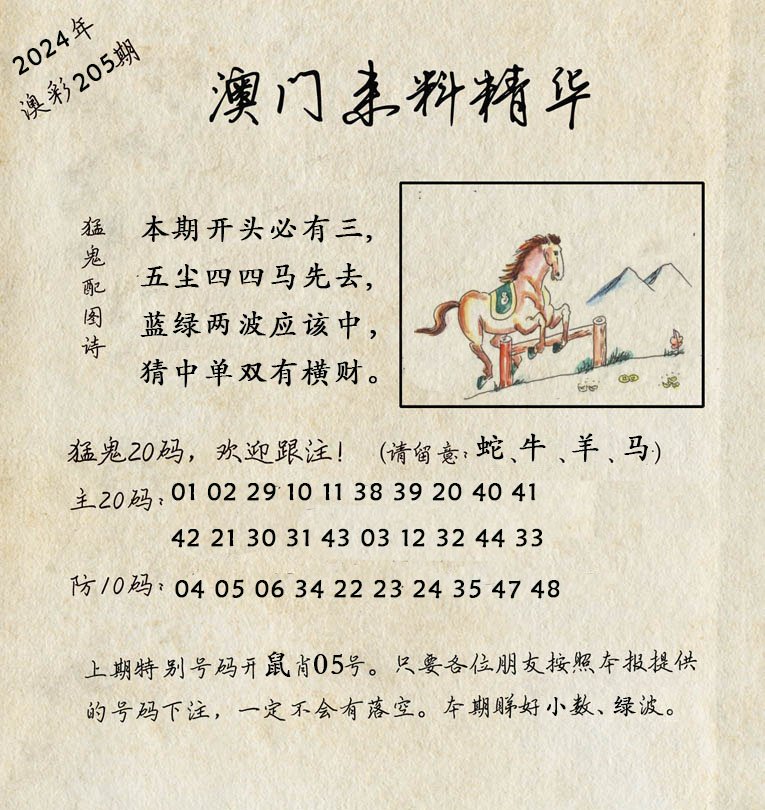 2024年
澳彩205期
澳门来料精华
猛鬼配图诗
本期开头必有三,
五尘四四马先去,
蓝绿两波应该中,
猜中单双有横财。
猛鬼20码，欢迎跟注！（请留意：蛇、牛、羊、马）
主20码：01 02 29 10 11 38 39 20 40 41
42 21 30 31 43 03 12 32 44 33
防10码：04 05 06 34 22 23 24 35 47 48
上期特别号码开鼠肖05号。只要各位朋友按照本报提供
的号码下注，一定不会有落空。本期睇好小数、绿波。